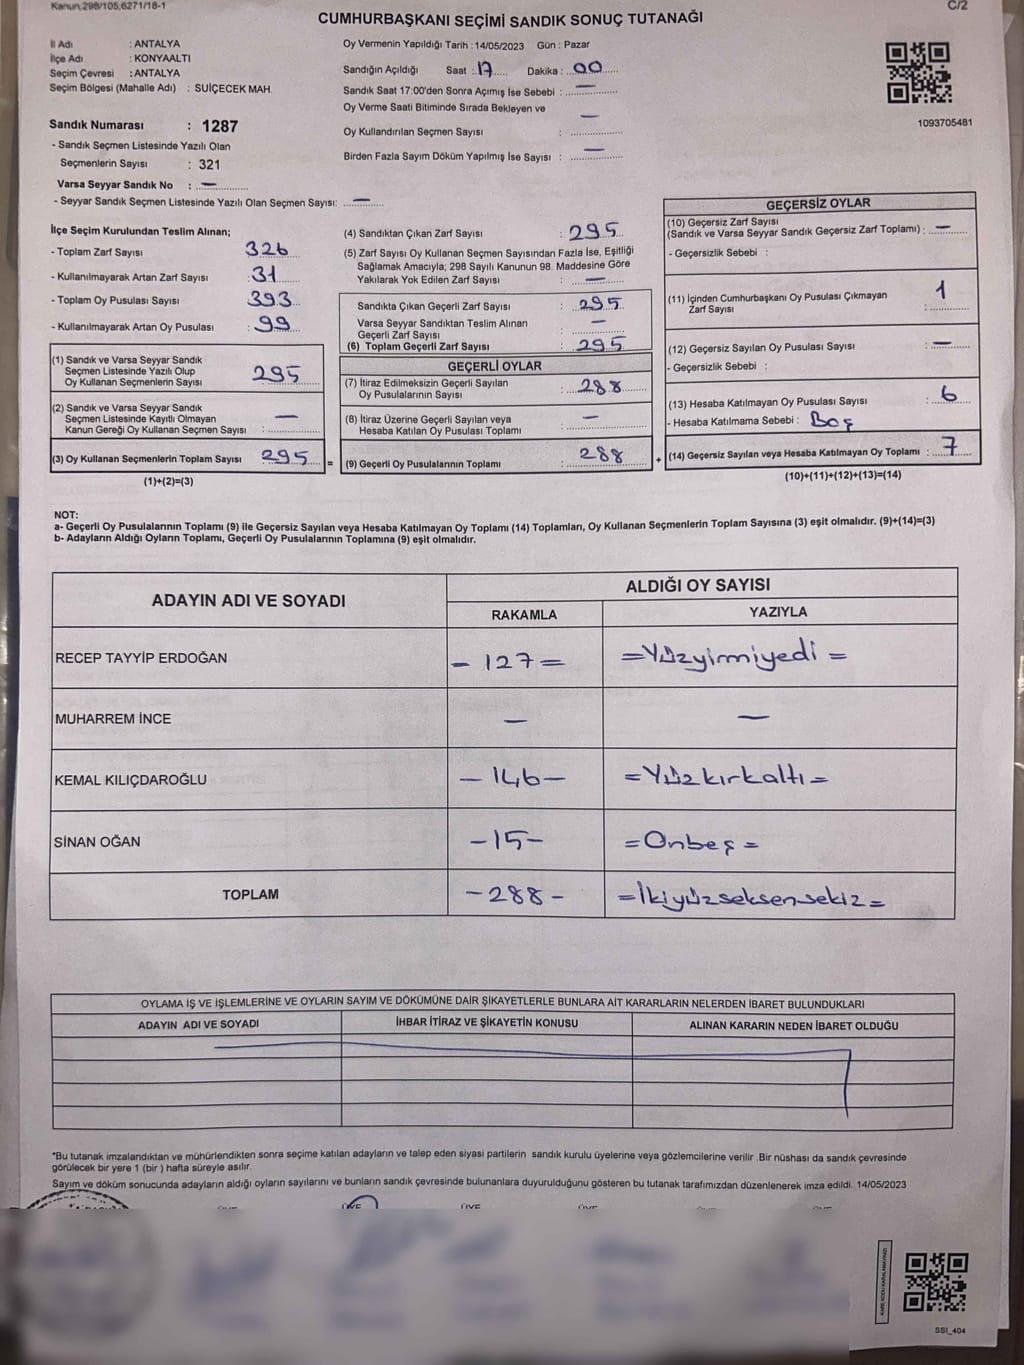 Kanun,298/105,6271/18-1
C/2
CUMHURBAŞKANI SEÇİMİ SANDIK SONUÇ TUTANAĞI
İl Adı : ANTALYA
İlçe Adı : KONYAALTI
Seçim Çevresi : ANTALYA
Seçim Bölgesi (Mahalle Adı) : SUİÇECEK MAH.
Sandık Numarası : 1287
- Sandık Seçmen Listesinde Yazılı Olan
Seçmenlerin Sayısı : 321
Varsa Seyyar Sandık No : —
- Seyyar Sandık Seçmen Listesinde Yazılı Olan Seçmen Sayısı: —
Oy Vermenin Yapıldığı Tarih : 14/05/2023 Gün : Pazar
Sandığın Açıldığı Saat : 17 Dakika : 00
Sandık Saat 17:00'den Sonra Açımış İse Sebebi : —
Oy Verme Saati Bitiminde Sırada Bekleyen ve
Oy Kullandırılan Seçmen Sayısı : —
Birden Fazla Sayım Döküm Yapılmış İse Sayısı : —
1093705481
İlçe Seçim Kurulundan Teslim Alınan;
- Toplam Zarf Sayısı : 326
- Kullanılmayarak Artan Zarf Sayısı : 31
- Toplam Oy Pusulası Sayısı : 393
- Kullanılmayarak Artan Oy Pusulası : 99
(1) Sandık ve Varsa Seyyar Sandık
Seçmen Listesinde Yazılı Olup
Oy Kullanan Seçmenlerin Sayısı 295
(2) Sandık ve Varsa Seyyar Sandık
Seçmen Listesinde Kayıtlı Olmayan
Kanun Gereği Oy Kullanan Seçmen Sayısı : —
(3) Oy Kullanan Seçmenlerin Toplam Sayısı 295
(1)+(2)=(3)
(4) Sandıktan Çıkan Zarf Sayısı : 295
(5) Zarf Sayısı Oy Kullanan Seçmen Sayısından Fazla İse, Eşitliği
Sağlamak Amacıyla; 298 Sayılı Kanunun 98. Maddesine Göre
Yakılarak Yok Edilen Zarf Sayısı : —
Sandıkta Çıkan Geçerli Zarf Sayısı : 295
Varsa Seyyar Sandıktan Teslim Alınan
Geçerli Zarf Sayısı : —
(6) Toplam Geçerli Zarf Sayısı : 295
GEÇERLİ OYLAR
(7) İtiraz Edilmeksizin Geçerli Sayılan
Oy Pusulalarının Sayısı : 288
(8) İtiraz Üzerine Geçerli Sayılan veya
Hesaba Katılan Oy Pusulası Toplamı : —
= (9) Geçerli Oy Pusulalarının Toplamı : 288
GEÇERSİZ OYLAR
(10) Geçersiz Zarf Sayısı
(Sandık ve Varsa Seyyar Sandık Geçersiz Zarf Toplamı) : —
- Geçersizlik Sebebi :
(11) İçinden Cumhurbaşkanı Oy Pusulası Çıkmayan
Zarf Sayısı : 1
(12) Geçersiz Sayılan Oy Pusulası Sayısı : —
- Geçersizlik Sebebi :
(13) Hesaba Katılmayan Oy Pusulası Sayısı : 6
- Hesaba Katılmama Sebebi : Boş
+ (14) Geçersiz Sayılan veya Hesaba Katılmayan Oy Toplamı : 7
(10)+(11)+(12)+(13)=(14)
NOT:
a- Geçerli Oy Pusulalarının Toplamı (9) ile Geçersiz Sayılan veya Hesaba Katılmayan Oy Toplamı (14) Toplamları, Oy Kullanan Seçmenlerin Toplam Sayısına (3) eşit olmalıdır. (9)+(14)=(3)
b- Adayların Aldığı Oyların Toplamı, Geçerli Oy Pusulalarının Toplamına (9) eşit olmalıdır.
ADAYIN ADI VE SOYADI
ALDIĞI OY SAYISI
RAKAMLA YAZIYLA
RECEP TAYYİP ERDOĞAN – 127 = =Yüzyirmiyedi =
MUHARREM İNCE — —
KEMAL KILIÇDAROĞLU – 146 – =Yüzkırkaltı =
SİNAN OĞAN –15– =Onbeş =
TOPLAM –288 – =İkiyüzseksensekiz =
OYLAMA İŞ VE İŞLEMLERİNE VE OYLARIN SAYIM VE DÖKÜMÜNE DAİR ŞİKAYETLERLE BUNLARA AİT KARARLARIN NELERDEN İBARET BULUNDUKLARI
ADAYIN ADI VE SOYADI İHBAR İTİRAZ VE ŞİKAYETİN KONUSU ALINAN KARARIN NEDEN İBARET OLDUĞU
*Bu tutanak imzalandıktan ve mühürlendikten sonra seçime katılan adayların ve talep eden siyasi partilerin sandık kurulu üyelerine veya gözlemcilerine verilir .Bir nüshası da sandık çevresinde
görülecek bir yere 1 (bir ) hafta süreyle asılır.
Sayım ve döküm sonucunda adayların aldığı oyların sayılarını ve bunların sandık çevresinde bulunanlara duyurulduğunu gösteren bu tutanak tarafımızdan düzenlenerek imza edildi. 14/05/2023
SSI_404